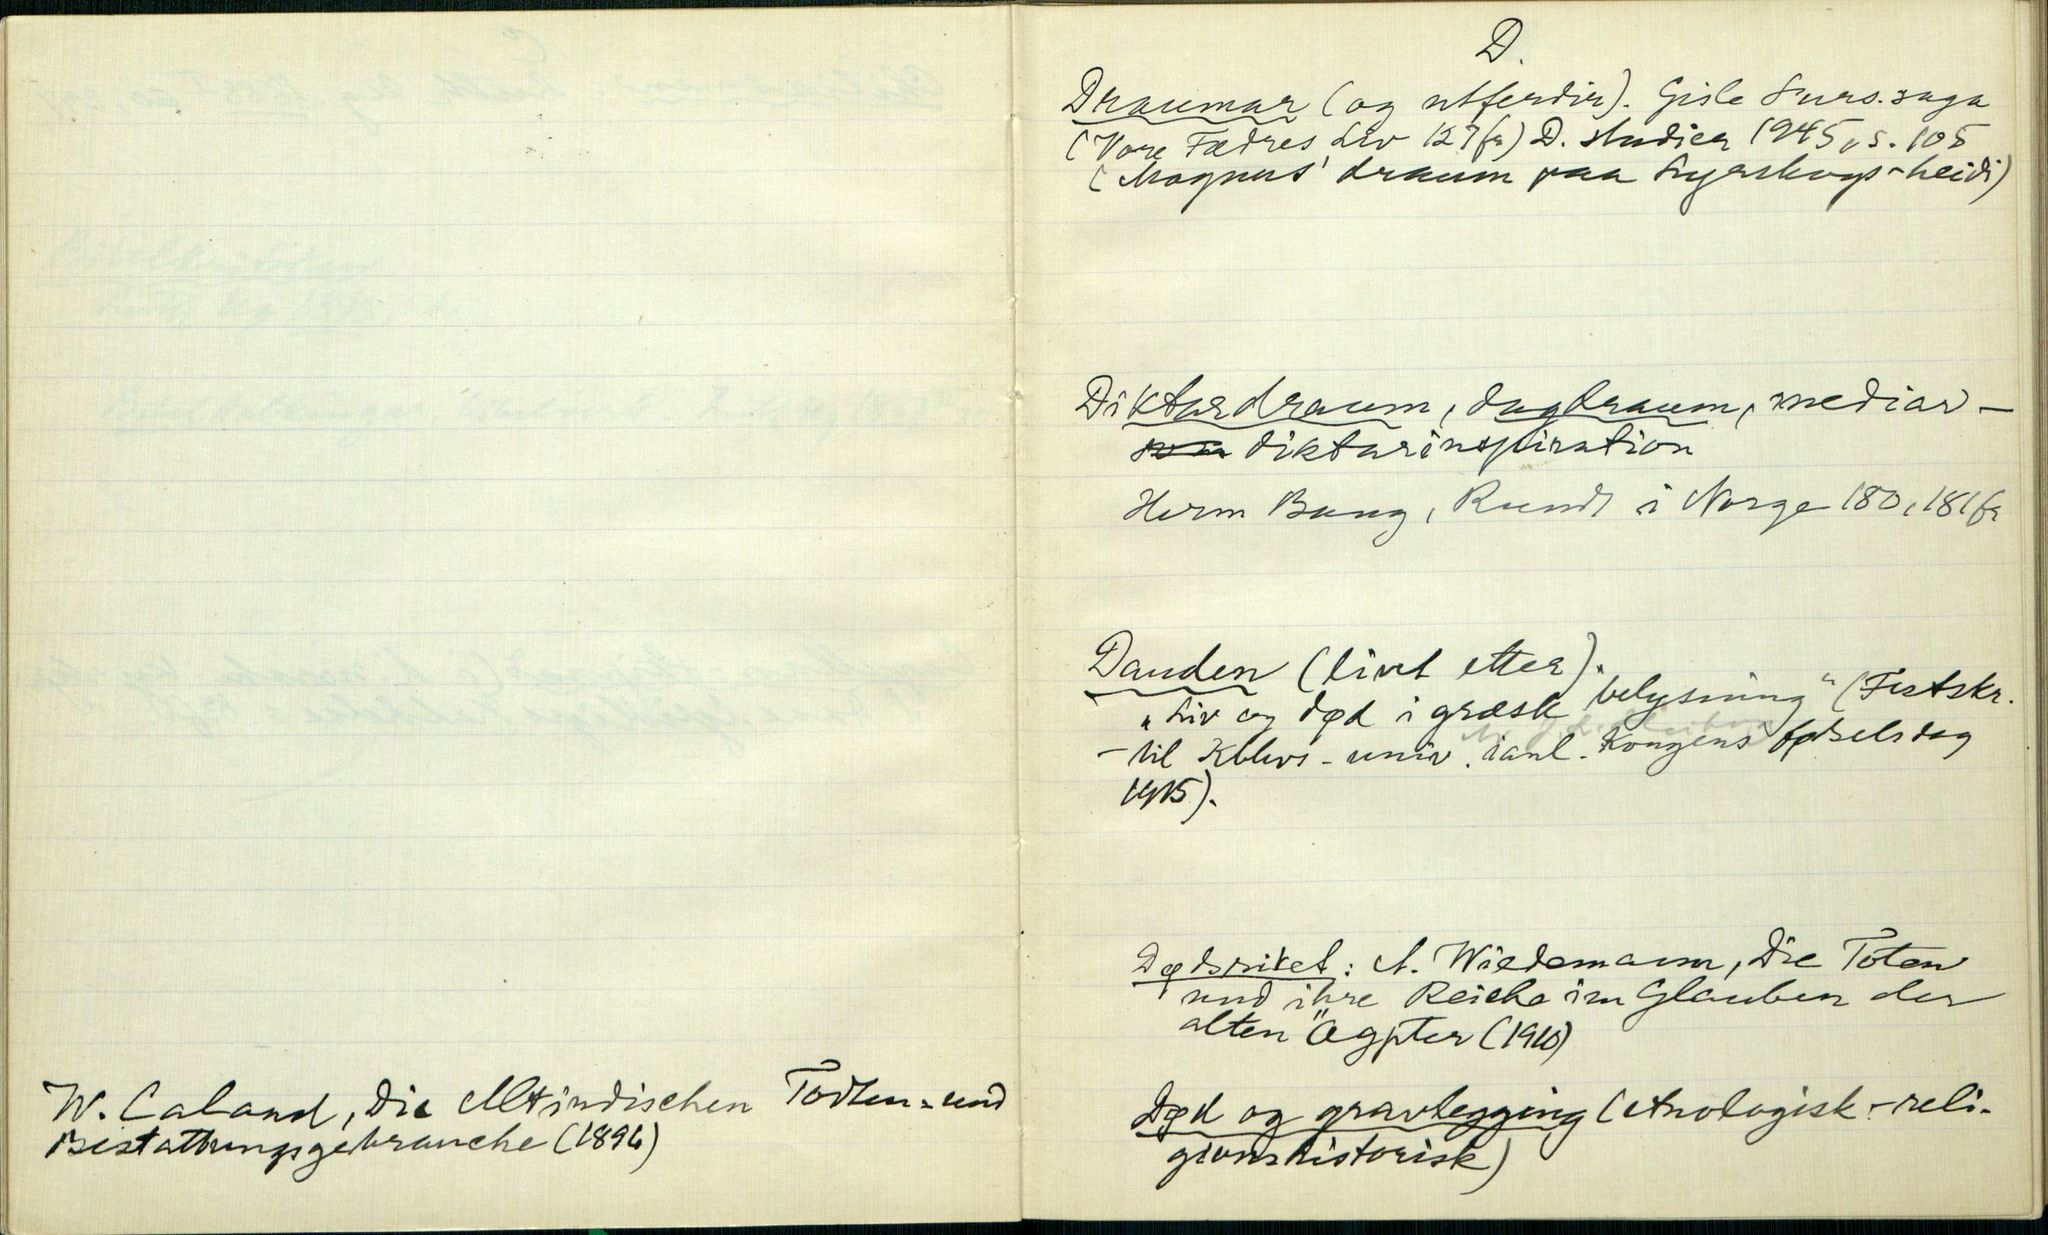 W. Caland, Die Altindischen Todten- und
Bestattungsgebrauche (1896)
D.
Draumar (og utferdir). Gisle Surs. saga
(Vore Fædres Liv 127fr) D. studier 1945, s. 105
(Magnus' draum paa Lyrskogs-heidi)
Diktardraum, dagdraum, mediar-
diktarinspiration
Herm Bang, Rundt i Norge 180, 181fr
Dauden (livet etter).
"Liv og død i græsk belysning" (Festskr.
til Kbhvs-univ. i anl. Kongens fødselsdag
1915).
Dødsriket: A. Wiedemann, Die Toten
und ihre Reiche im Glauben der
alten Ägypter (1910)
Død og gravlegging (etnologisk-reli-
gionshistorisk)